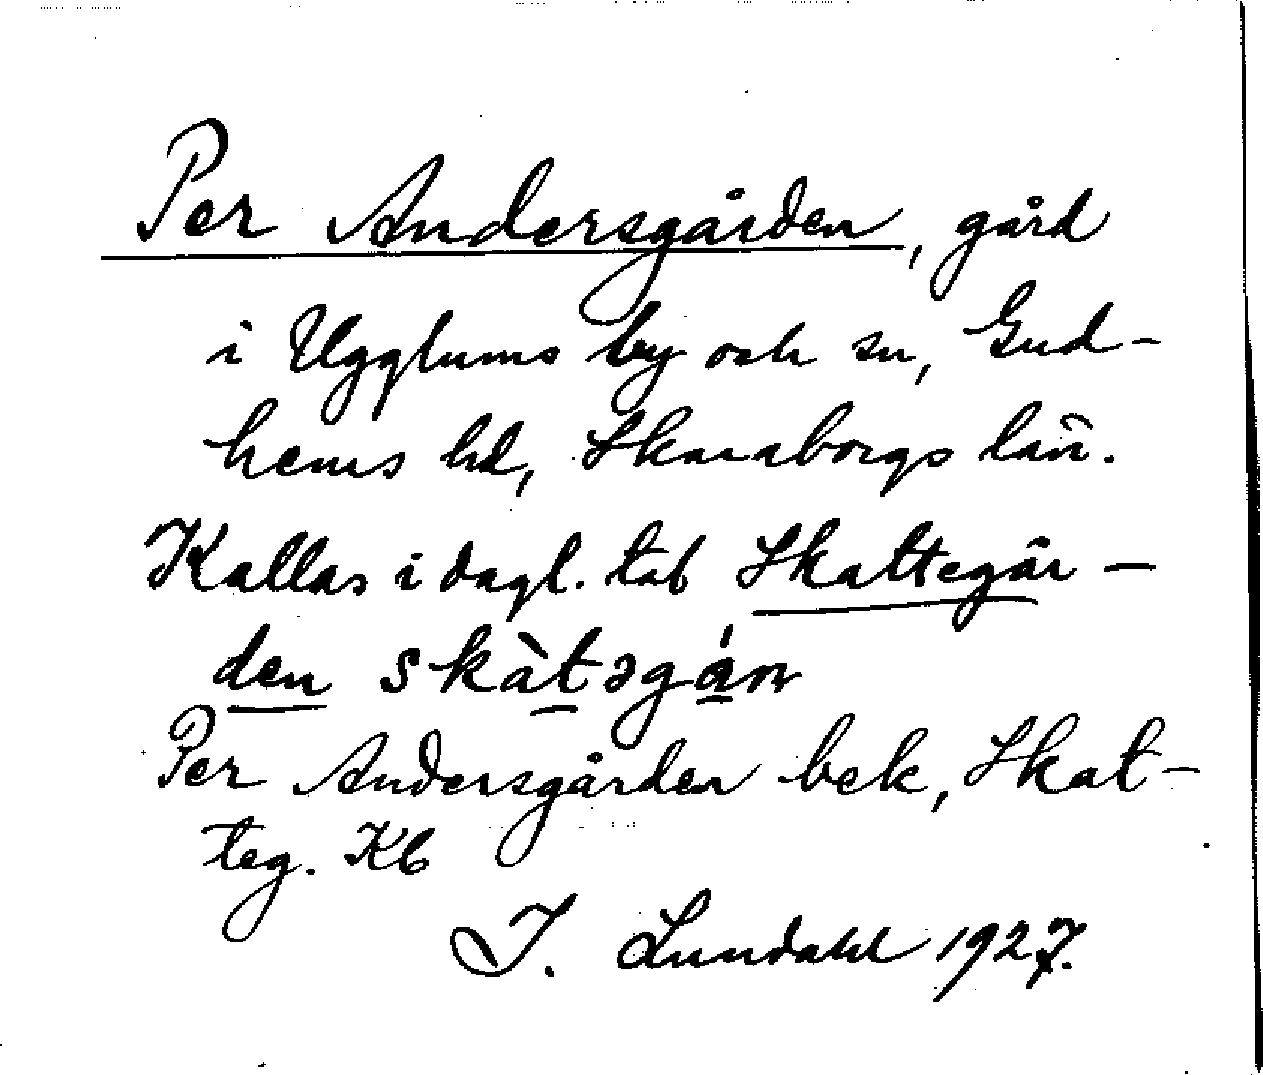 Per Andersgården, gård
i Ugglums by och sn, Gud-
hems hd, Skaraborgs län.
Kallas i dagl. tal Skattegår-
den skàtəgán
Per Andersgården bek, Skat-
teg. Kb
I. Lundahl 1927.